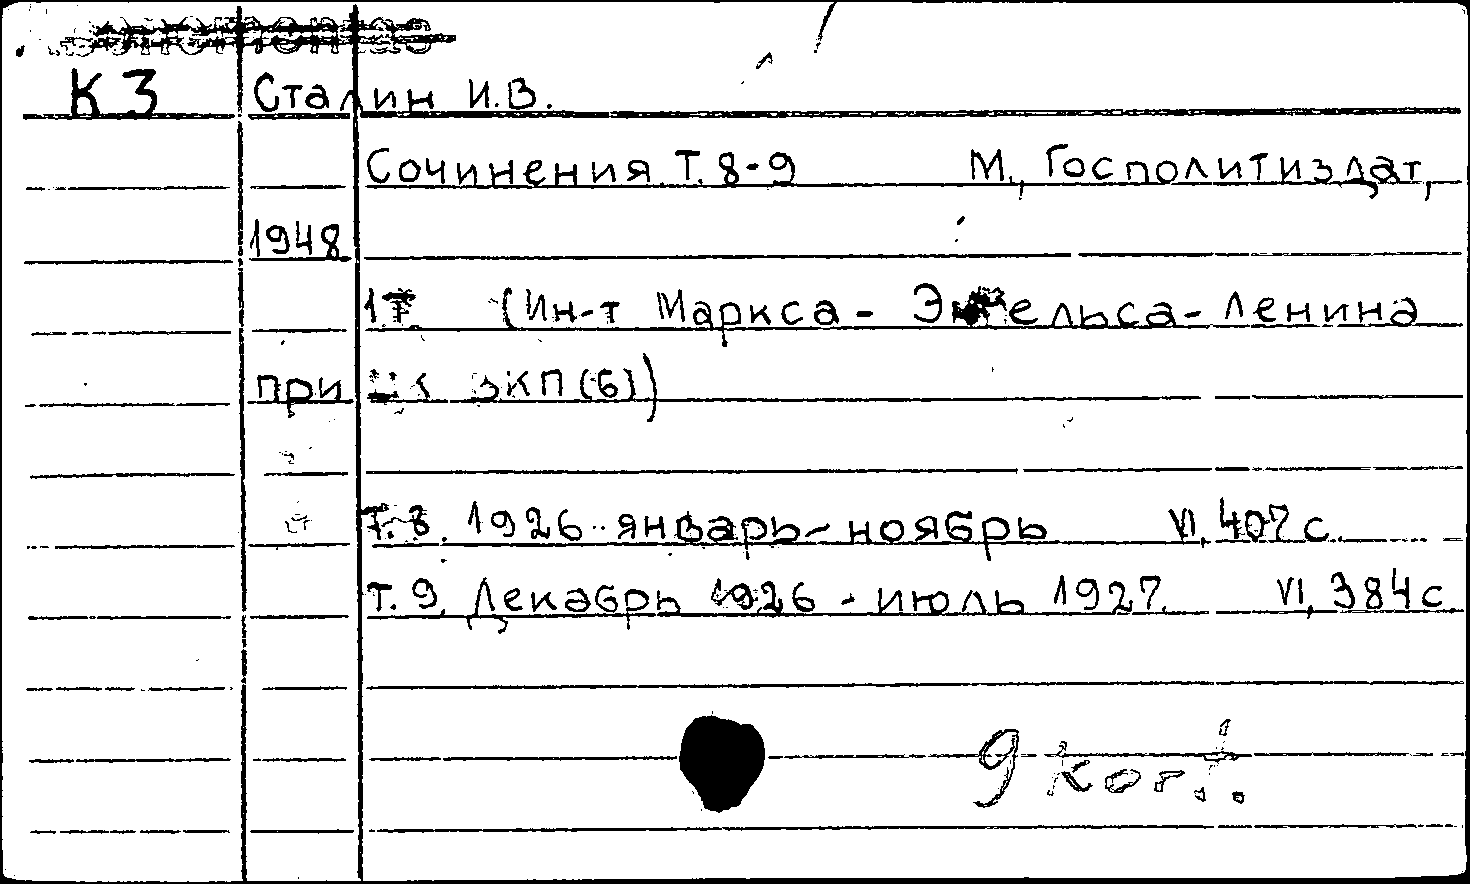 К3 Сталин И.В.
Сочинения Т. 8-9 М., Госполитиздат,
1948.
1т. (Ин-т Маркса - Энгельса - Ленина
при ЦК ВКП(б))
Т. 8. 1926 январь - ноябрь VI, 407 с.
Т. 9. Декабрь 1926 - июль 1927. VI, 384 с.
9